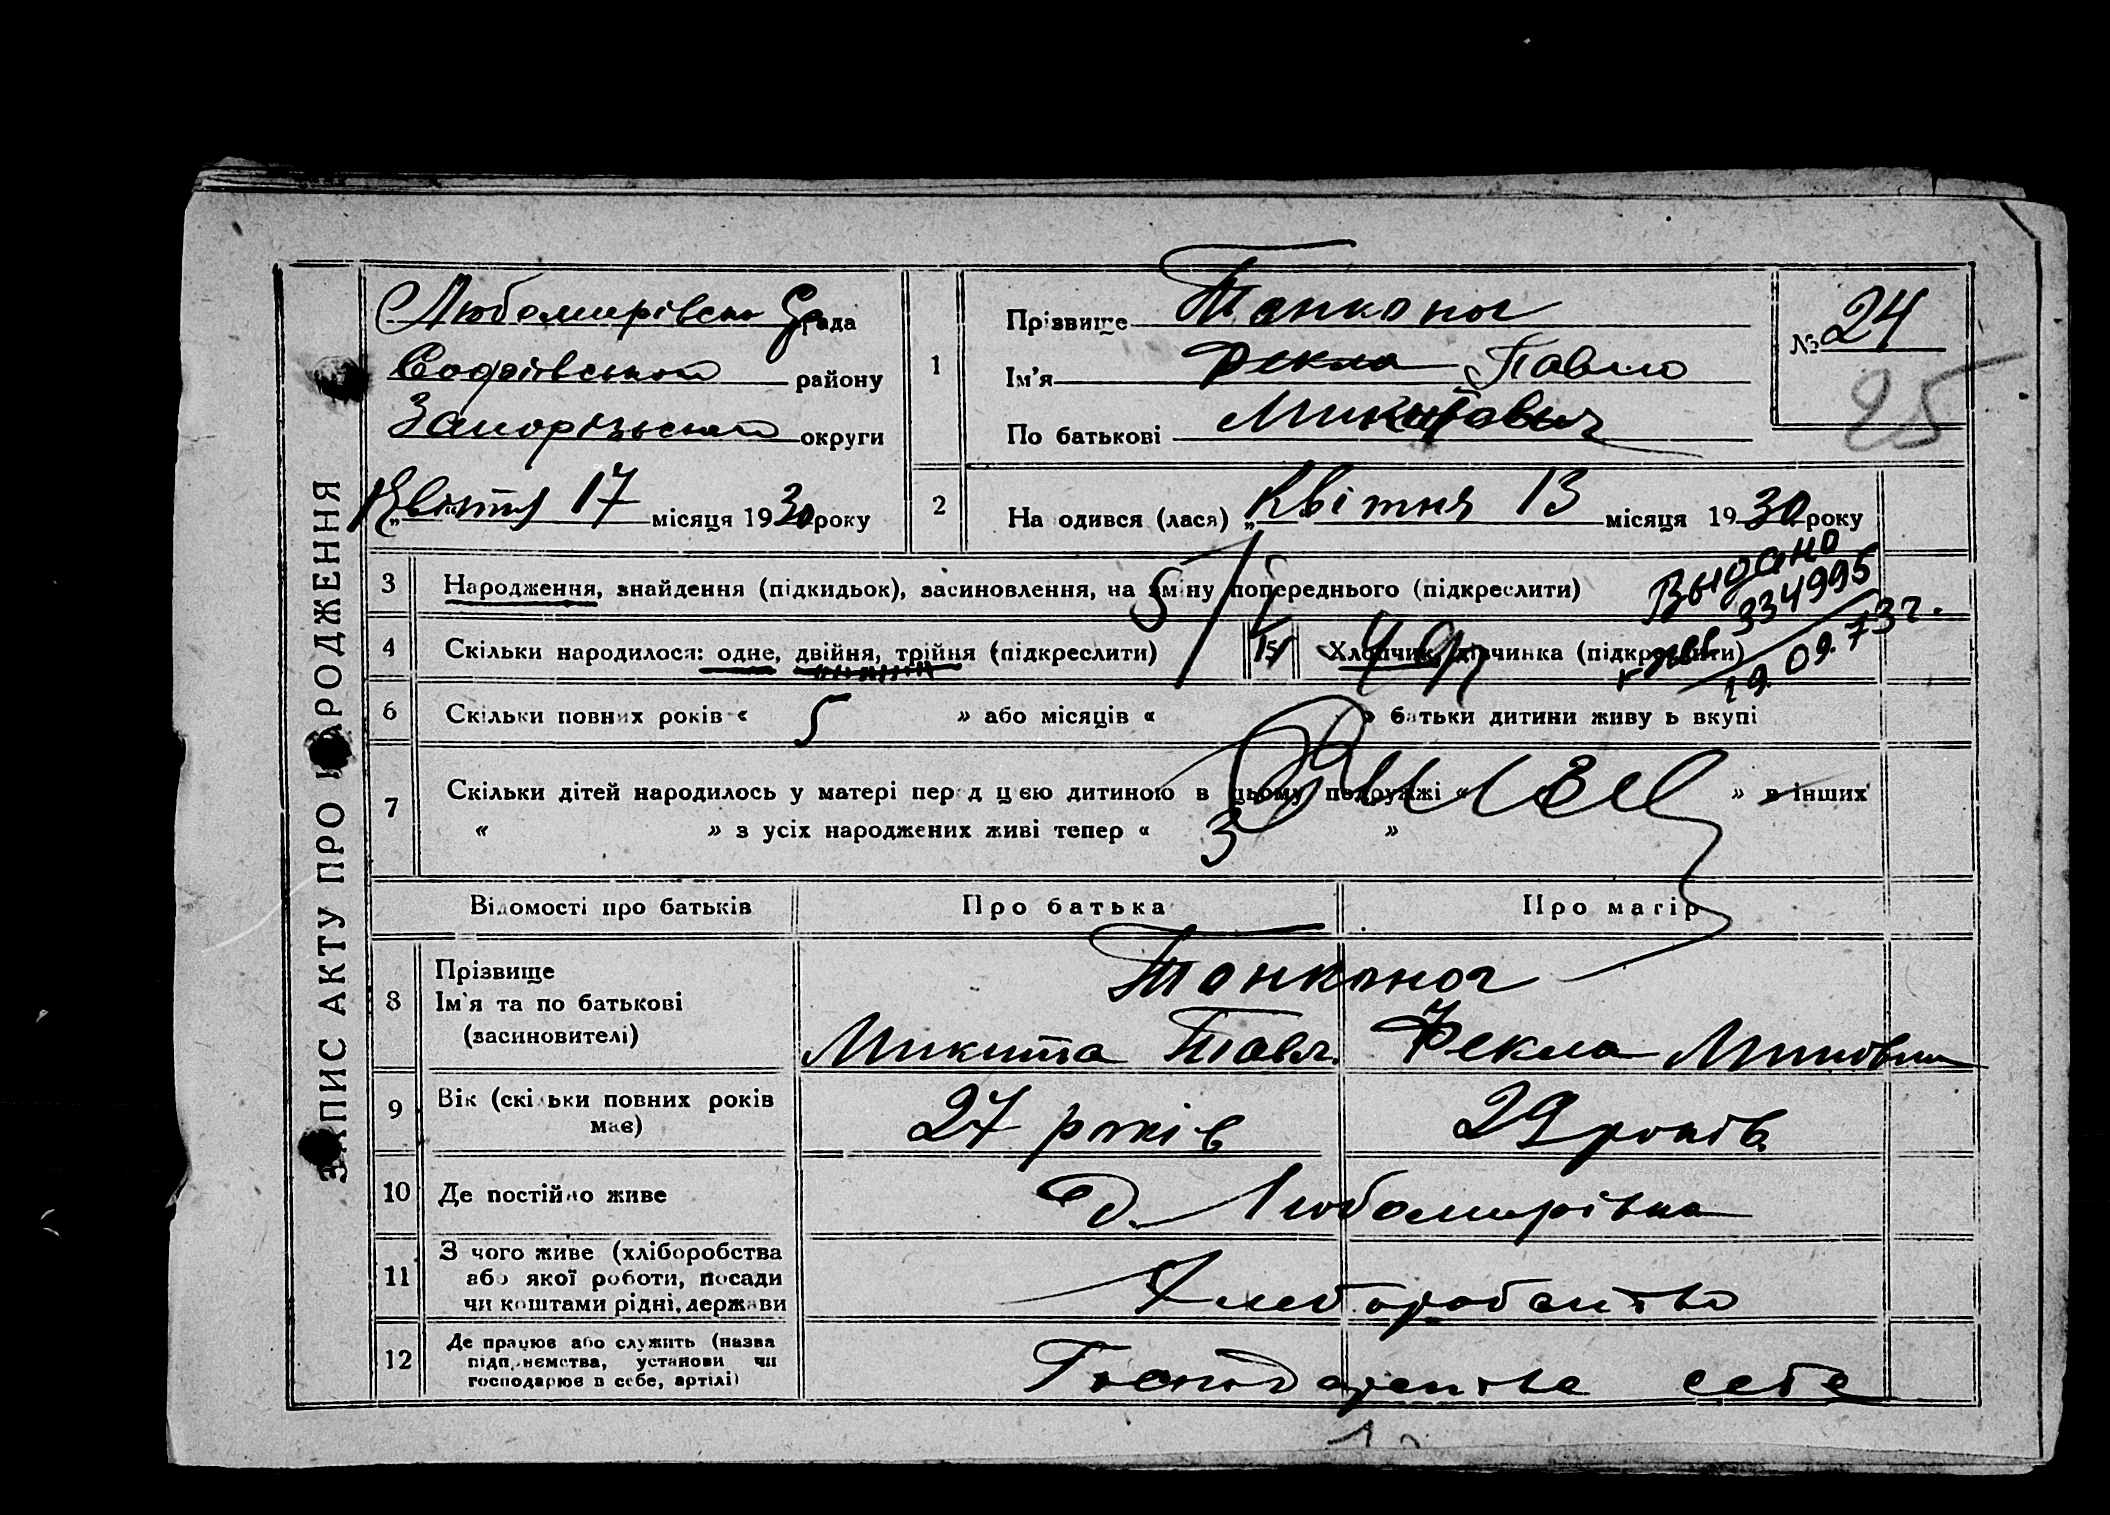 ЗАПИС АКТУ ПРО НАРОДЖЕННЯ
Любомирівська С рада
Софіївського району
Запорізької округи
Квітня 17 місяця 1930 року
1
Прізвище Тонконог
Ім'я Фекла Павло
По батькові Микитович
№ 24
25
2
Народився (лася) „ Квітня 13 місяця 1930 року
3 Народження, знайдення (підкидьок), засиновлення, на зміну попереднього (підкреслити)
Выдано
334995
19.09.73г.
4 Скільки народилося: одне, двійня, трійня (підкреслити)
5 Хлопчик, дівчинка (підкреслити)
6 Скільки повних років « 5 » або місяців « » батьки дитини живуть вкупі
7 Скільки дітей народилось у матері перед цією дитиною в цьому подружжі « » в інших
« » з усіх народжених живі тепер « 3 »
Відомості про батьків Про батька Про матір
8 Прізвище
Ім'я та по батькові
(засиновителі)
Тонконог
Микита Павл. Фекла
9 Вік (скільки повних років
має)
27 років 29 років
10 Де постійно живе Д. Любомирівка
11 З чого живе (хліборобства
або якої роботи, посади
чи коштами рідні, держави
Хлеборобство
12 Де працює або служить (назва
підприємства, установи чи
господарює в себе, артілі)
себе